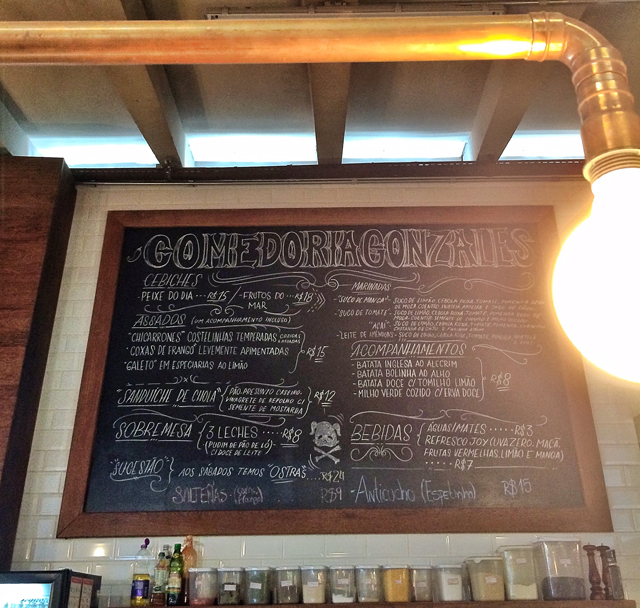 COMEDORIA GONZALES
CEBICHES
PEIXE DO DIA ... R$15 / FRUTOS DO MAR ... R$18
ASSADOS (UM ACOMPANHAMENTO INCLUSO)
"CHICARRONES" COSTELINHAS TEMPERADAS
• COXAS DE FRANGO LEVEMENTE APIMENTADAS
R$15
"GALETO" EM ESPECIARIAS AO LIMÃO
"SANDUÍCHE DE CHOLA"
PÃO, PRESUNTO CASEIRO,
VINAGRETE DE REPOLHO C/
SEMENTE DE MOSTARDA
R$12
SOBREMESA
3 LECHES ..... R$8
(PUDIM DE PÃO DE LÓ
C/ DOCE DE LEITE)
"SUGESTÃO"
AOS SÁBADOS TEMOS "OSTRAS" .... R$24
SALTEÑAS R$9
MARINADAS
"SUCO DE MANGA"
"SUCO DE TOMATE"
"AJI"
-LEITE DE AMÊNDOAS
ACOMPANHAMENTOS
- BATATA INGLESA AO ALECRIM
- BATATA BOLINHA AO ALHO
- BATATA DOCE C/ TOMILHO LIMÃO
- MILHO VERDE COZIDO C/ ERVA DOCE
R$8
BEBIDAS
ÁGUAS/MATES ..... R$3
REFRESCO JOY (UVA ZERO, MAÇÃ,
FRUTAS VERMELHAS, LIMÃO E MANGA)
..... R$7
-Anticucho (Espetinho) R$15